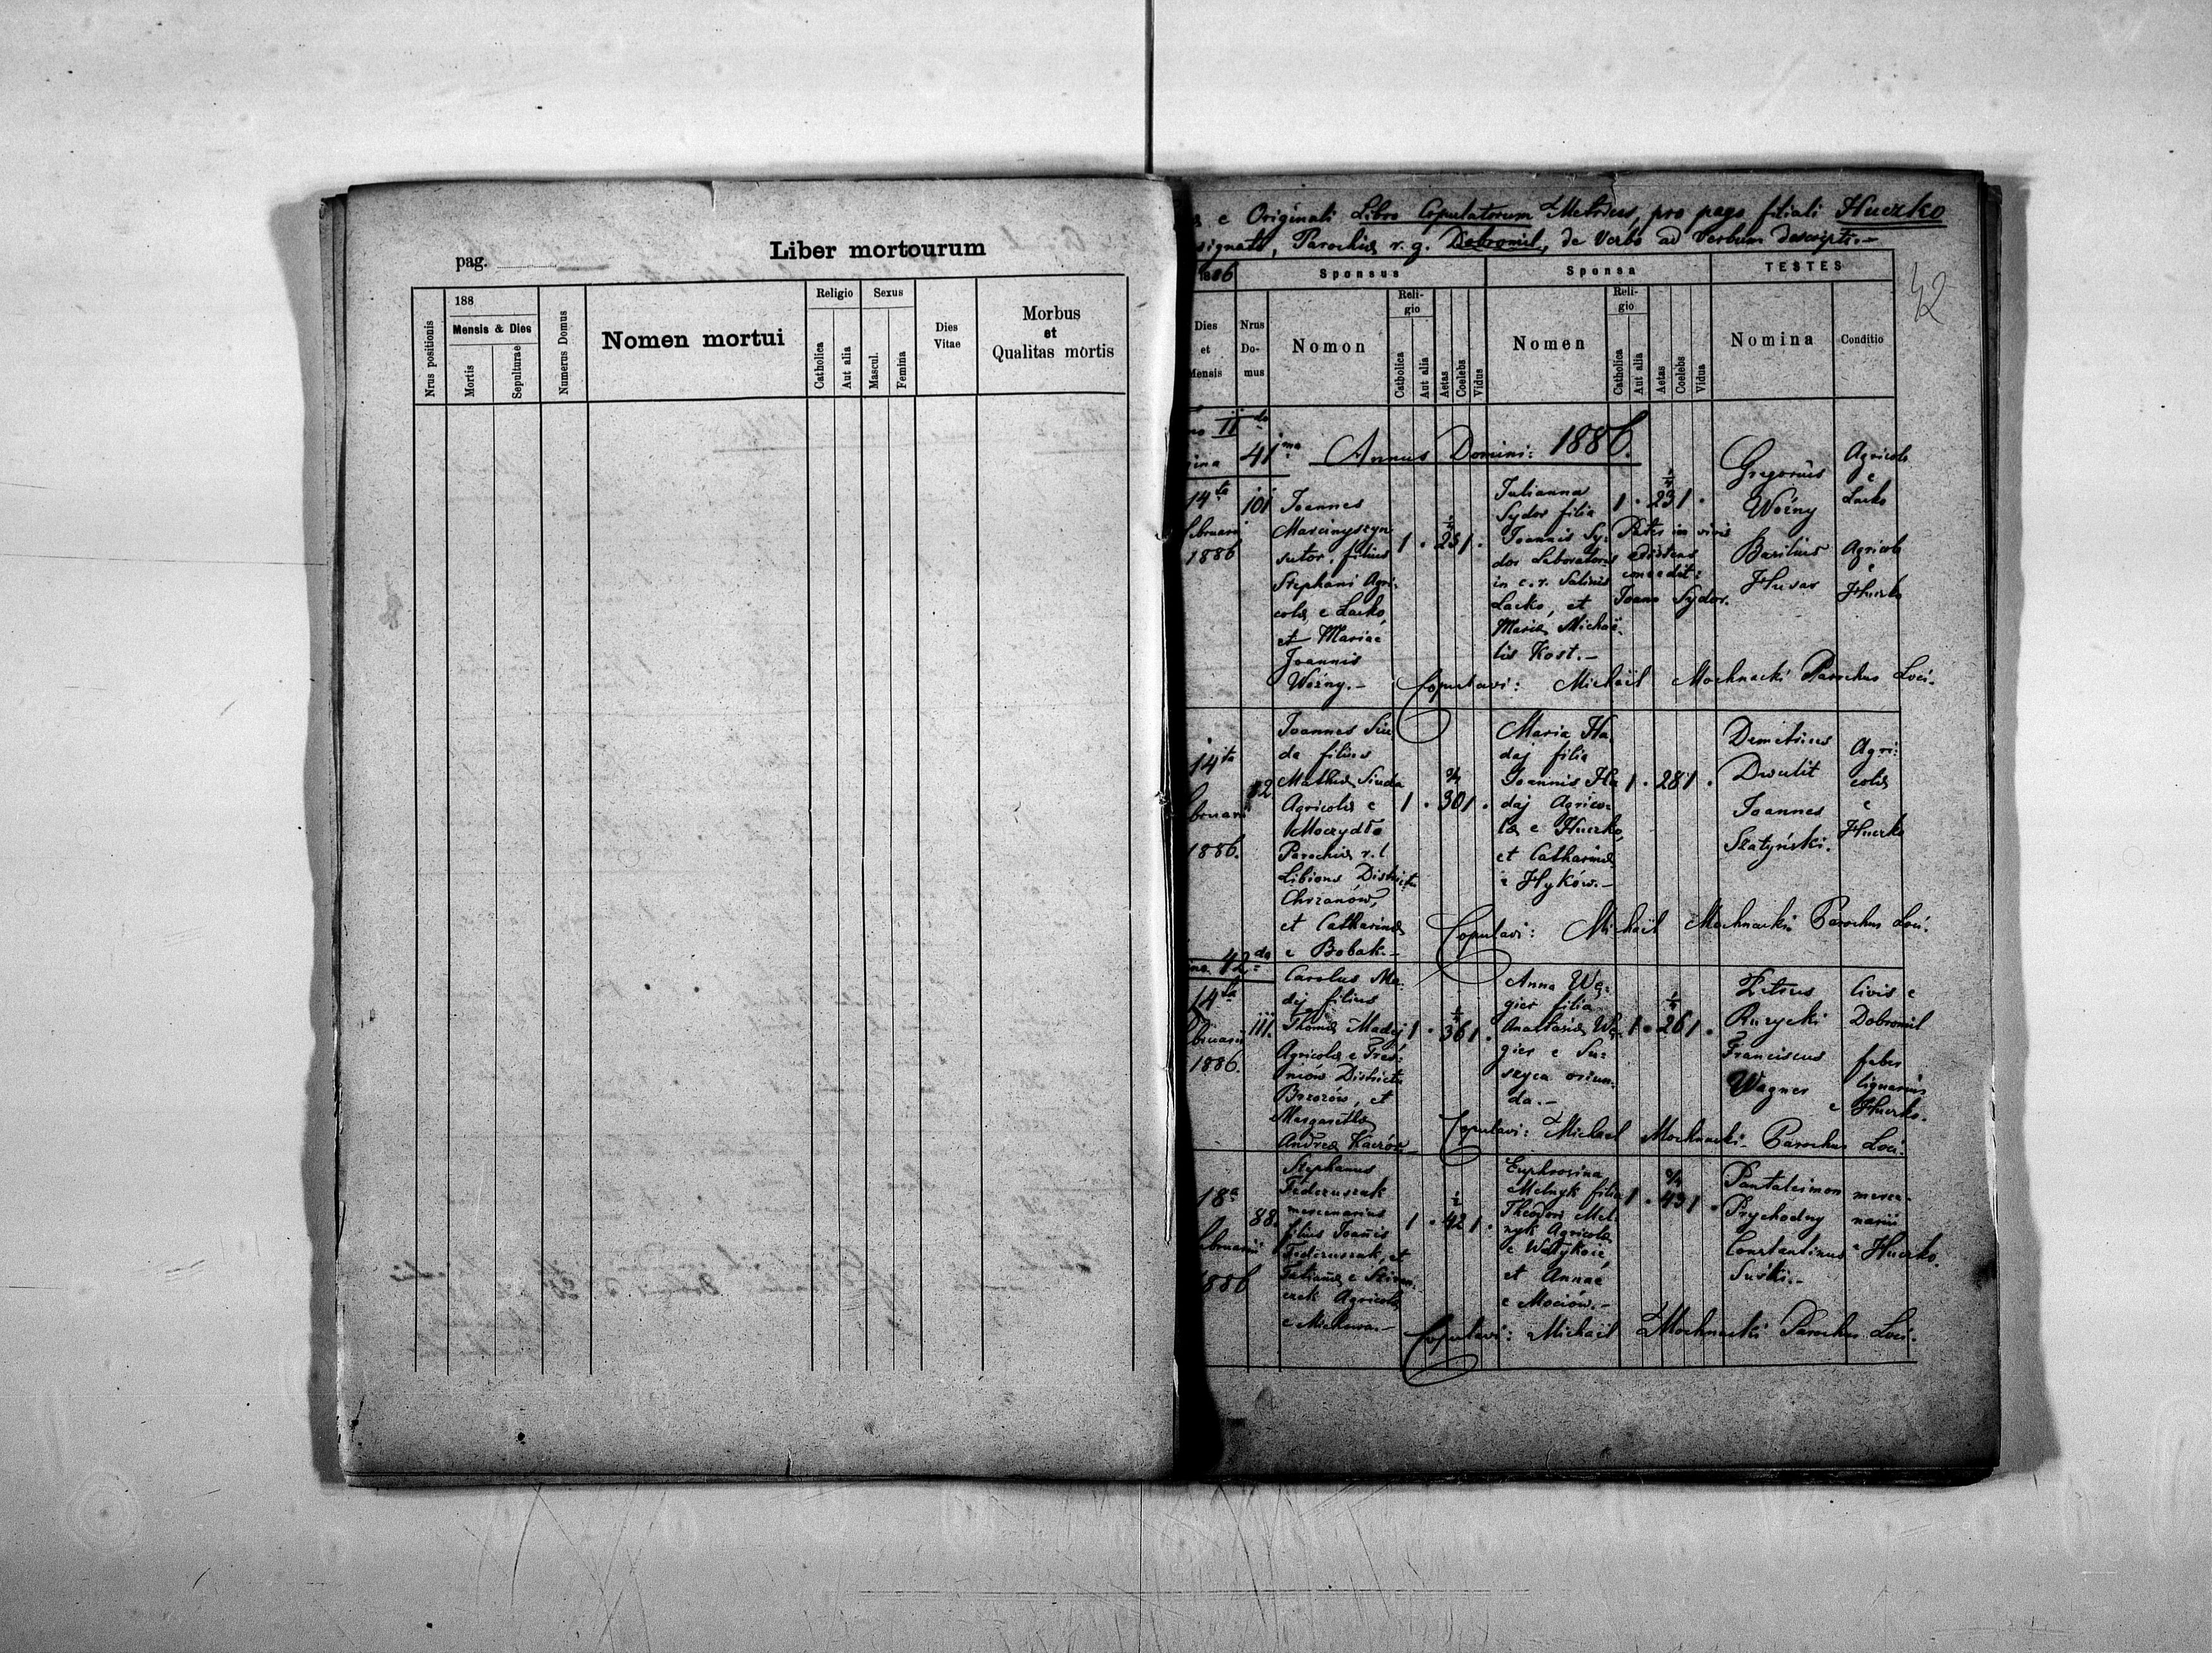 pag.
Liber mortourum
Nrus positionis
188
Mensis & Dies
Mortis
Sepulturae
Numerus Domus
Nomen mortui
Religio
Catholica
Aut alia
Sexus
Mascul.
Femina
Dies
Vitae
Morbus
et
Qualitas mortis
e Originali Libro Copulatorum Metrices, pro pago filiali Huczko
signati, Parochiæ r. g. Dobromil, de Verbo ad Verbum descripti.-
42
1886
Sponsus
Sponsa
TESTES
Dies
et
Mensis
Nrus
Do-
mus
Nomon
Reli-
gio
Catholica
Aut alia
Aetas
Coelebs
Vidus
Nomen
Reli-
gio
Catholica
Aut alia
Aetas
Coelebs
Vidua
Nomina
Conditio
II do
41 ma
Annus Domini: 1886.
14 ta
bruarii
1886
101
Joannes
Marcinyszyn
sutor, filius
Stephani Agri-
colæ e Lacko,
et Mariae
Joannis
Woźny.-
1 . 23 1 .
Julianna
Sydor filia
Joannis Sy-
dor Laboratoris
in c. r. Salinis
Lacko, et
Mariæ Michaë-
lis Kost.-
1 . 23 1 .
Pater in vivis
existens
concedit:
Joann Sydor.
Gregorius
Woźny
Basilius
Husar
Agricola
e
Lacko
Agricola
e
Huczko
Copulavi: Michaël Mochnacki Parochus Loci.
14 ta
bruarii
1886.
12
Joannes Siu
da filius
Mathiæ Siuda
Agricolæ e
Moczydło
Parochiæ r. l.
Libions Districtu
Chrzanów,
et Catharinæ
e Bobak.-
1 . 30 1 .
Maria Ha
daj filia
Joannis Ha
daj Agrico-
læ e Huczko,
et Catharinæ
e Hyków.-
1 . 28 1 .
Demetrius
Dwulit
Joannes
Szatyński.
Agri-
colæ
e
Huczko
Copulavi: Michaël Mochnacki Parochus Loci.
42 da
14 ta
bruarii
1886.
111.
Carolus Ma-
dej filius
Thomæ Madej
Agricolæ e Tres-
niów Districtu
Brzozów, et
Margarethæ
Andreæ Kaczór
1 . 36 1 .
Anna Wę-
gier filia
Anastasiæ Wę-
gier e Su-
szyca oriun-
da.-
1 . 26 1 .
Petrus
Ruzycki
Franciscus
Wagner
Civis e
Dobromil
faber
lignarius
e Huczko.
Copulavi: Michael Mochnacki Parochus Loci.
18 a
bruarii
1886
88.
Stephanus
Federuszak
mercenarius
filius Joannis
Federuszak, et
Agricolæ
1 . 42 1 .
Euphrosina
Melnyk filia
Theodori Mel-
nyk Agricolæ
et Annae
e Mociów.-
1 . 43 1 .
Pantaleimon
Prychodny
Constantinus
Suski.-
merce-
narii
e Huczko.
Copulavi: Michaël Mochnacki Parochus Loci.